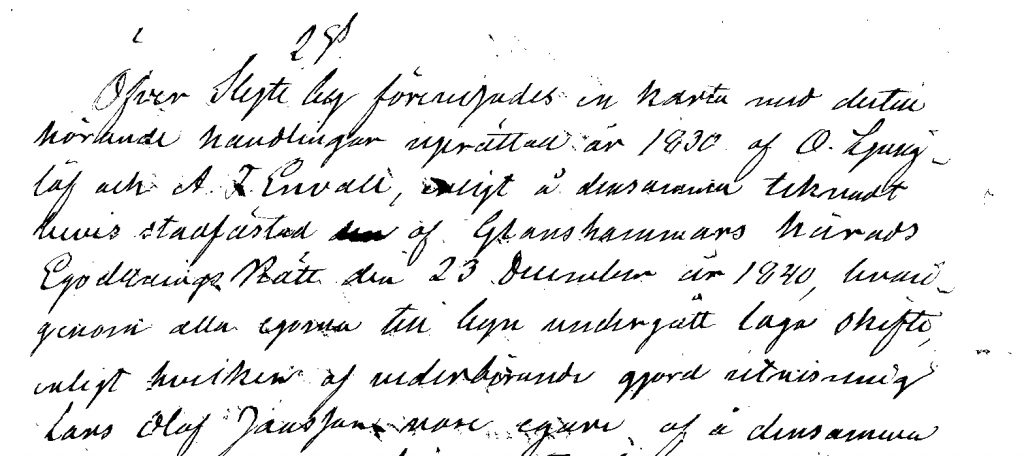 2 §
Öfver Slyte by förevisades en karta med dertill
hörande handlingar uprättad år 1830 af O. Ljung-
löf och A Z Envall, enligt å densamma teknadt
bevis stadfästad af Glanshammars härads
Egodelnings Rätt den 23 December år 1840, hvari-
genom alla egorna till byn undergått laga skifte,
enligt hvilken af vederbörande gjord utvisning
Lars Olof Jansson vore egare af å densamma